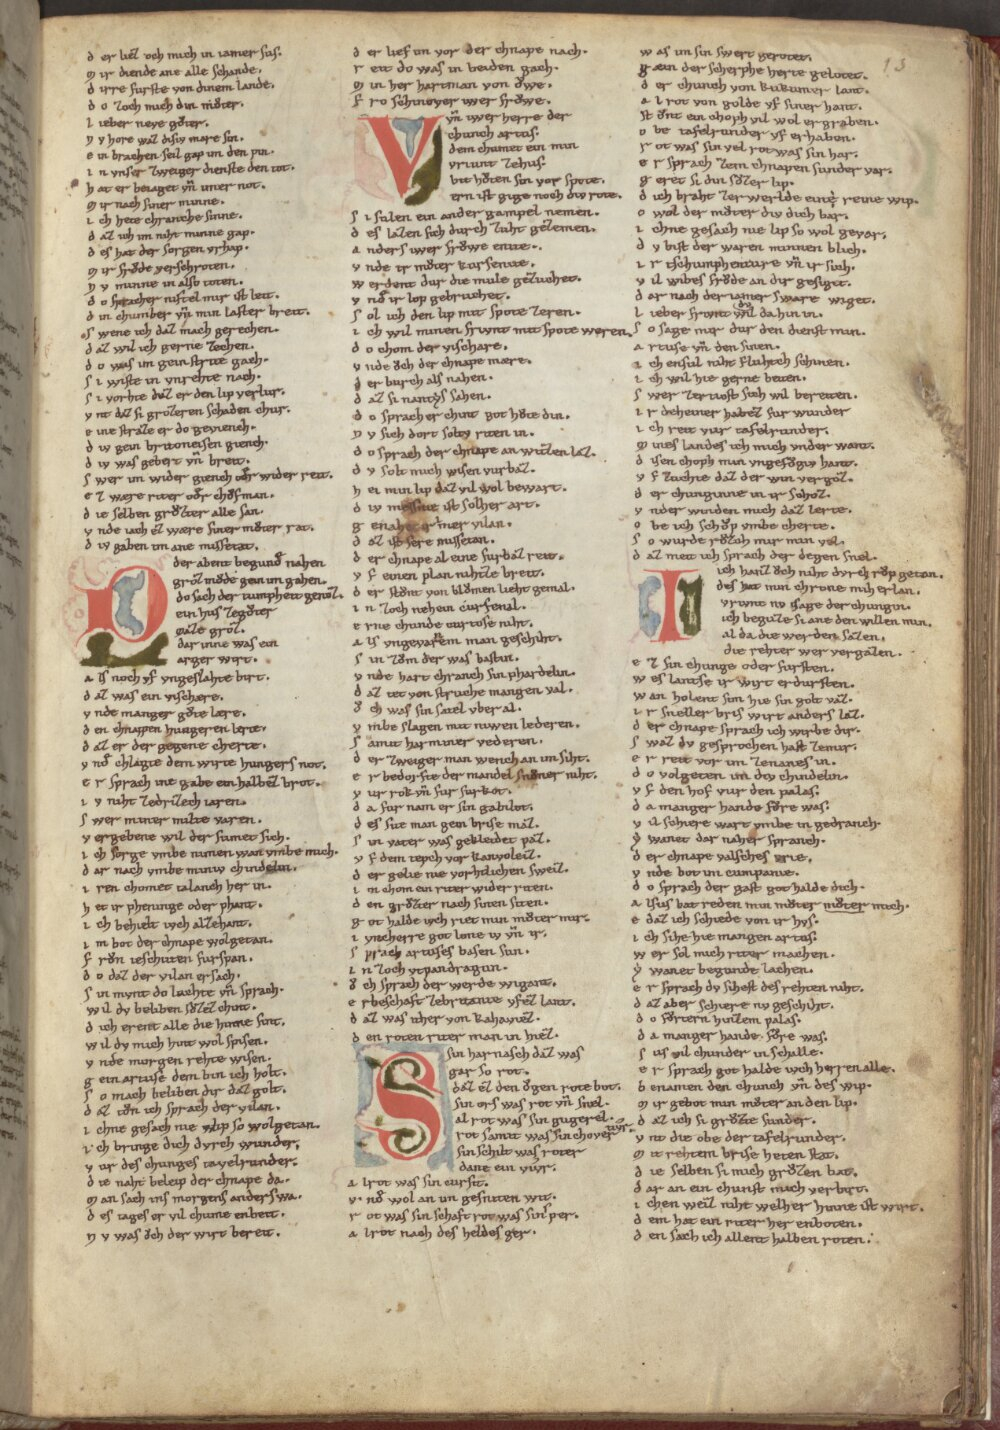 d er liez och mich in iamer sus.
m ir diende ane alle schande.
d irre furste von dinem lande.
d o zoch mich din mͦter.
l ieber neve gͦter.
n v hore waz disiv mare sin.
e in brachen seil gap im den pin.
i n vnser zweiger dienste den tot.
h at er beiaget vn̄ imer not.
m ir nach siner minne.
i ch hete chranche sinne.
d az ich im niht minne gap.
d es hat der sorgen vrhap.
m ir frͦde verschroten.
n v minne in also toten.
d o sprach er niftel mir ist leit.
d in chumber vn̄ min laster breit.
s wenne ich daz mach gerechen.
d az wil ich gerne zechen.
d o was im gein strite gach.
s i wiste in vnrehte nach.
s i vorhte daz er den lip verlur.
v nt daz si grozeren schaden chur.
e ine straze er do geviench.
d iv gein britoneisen giench.
d iv was gebert vn̄ breit.
s wer im wider giench oder wider reit.
e z wære riter oder chͦfman.
d ie selben grͦzter alle san.
v nde iach ez wære siner mͦter rat.
d iv gaben im ane missetat.
der abent begunde nahen
groz mͦde gein im gahen.
do sach der tumpheit genoz.
ein hus ze gͦter
maze groz.
dar inne was ein
arger wirt.
a ls noch vf vngeslahte birt.
d az was ein vischære.
v nde maniger gͦte lære.
d en chnappen hungeren lerte.
d az er der gegene cherte.
v nd chlagte dem wirte hungers not.
e r sprach ine gabe ein halbez brot.
i v niht ze drizech iaren.
s wer miner milte varen.
v ergebene wil der sumet sich.
i ch sorge vmbe nimen wan vmbe mich.
d ar nach vmbe miniv chindelin.
i ren chomet talanch her in.
h et ir phenninge oder phant.
i ch behielt ivch allzehant.
i m bot der chnape wolgetan.
f rͦn ieschuten furspan.
d o daz der vilan ersach.
s in mvnt do lachte vn̄ sprach.
w il dv beliben sͦzez chint.
d ich erent alle die hinne sint.
w il dv mich hint wol spisen.
v nde morgen rehte wisen.
g ein artuse dem bin ich holt.
s o mach beliben dir daz golt.
d az tͦn ich sprach der vilan.
i chne gesach nie lip so wolgetan.
i ch bringe dich dvrch wunder.
v ur des chunges tavelrunder.
d ie naht beleip der chnape da.
m an sach ins morgens anders wa.
d es tages er vil chume enbeit.
n v was ͦch der wirt bereit.
d er lief im vor der chnape nach.
r eit do was in beiden gach.
m in her hartman von ͦwe.
f ro Schinoyer iwer frͦwe.
vn̄ iwer herre der
chunch artus.
dem chumet ein min
vriunt ze hus.
bit hͦten sin vor spote.
ern ist gige noch div rote.
s i sulen ein ander gampel nemen.
d es lazen sich durch zuht gezemen.
a nders iwer frͦwe enite.
v nde ir mͦter karsenite.
w erdent dur die mule gezuchet.
v nd ir lop gebruchet.
s ol ich den lip mit spote zeren.
i ch wil minen friunt mit spote weren.
d o chom der vischare.
v nde ͦch der chnape mare.
e er burch als nahen.
d az si nantys sahen.
d o sprach er chint got hͦte din.
n v sich dort soltv riten in.
d o sprach der chnape an witzen laz.
d v solt mich wisen vurbaz.
h ei min lip daz vil wol bewart.
d iv massnie ist solher art.
g enahet ir imer vilan.
d az ist sere missetan.
d er chnape al eine furbaz reit.
v f einen plan niht ze breit.
d er stͦnt von blͦmen lieht gemal.
i n zoch nehein curvenal.
e rne chunde curtose niht.
a ls vngevarnem man geschiht.
s in zͦm der was bastin.
v nde hart chranch sin phardelin.
d az tet von struche mangen val.
ͦ ch was sin satel vber al.
v mbe slagen mit niwen lederen.
s amit harminer vederen.
d er zweiger man wench an im siht.
e r bedorfte der mandel snͦner niht.
v ur rok vn̄ fur surkot.
d a fur nam er sin gabilot.
d es site man gein brise maz.
s in vater was gekleidet paz.
v f dem tepch vor kanvoleiz.
d er gelie nie vorhtlichen sweiz.
i m chom ein riter wider riten.
d en grͦzter nach sinen siten.
g ot halde ivch riet min mͦter mir.
i vncherre got lone iv vn̄ ir.
s prach artuses basen sun.
i n zoch vtpandragun.
ͦ ch sprach der werde wigant.
e rbeschaft ze britanie vf ez lant.
d az was ither von kahaviez.
d en roten riter man in hiez.
sin harnasch daz was
gar so rot.
daz ez den ͦgen rote bot.
sin ors was rot vn̄ snel.
al rot was sin gugerel.
rot samit was sin chovertiur.
sin schilt was roter
danne ein viur.
a l rot was sin cursit.
v nd wol an im gesniten wit.
r ot was sin schaft rot was sin sper.
a l rot nach des heldes ger.
w as im sin swert gerotet.
g ein der scherphe herte gelotet.
d er chunch von kukumerlant.
a l rot von golde vf siner hant.
st ͦnt ein choph vil wol ergraben.
o be tafelrunder vf erhaben.
r ot was sin vel rot was sin har.
e r sprach zem chnapen sunder var.
g eret si din sͦzer lip.
d ich braht zer werlde eine reine wip.
o wol der mͦter div dich bar.
i chne gesach nie lip so wol gevar.
d v bist der waren minnen blich.
i r tschumphenture vn̄ ir sich.
v il wibes frͦde an dir gesiget.
d ar nach der iamer sware wiget.
l ieber friunt wil dv da hin in.
s o sage mir dur den dienst min.
a rtuse vn̄ den sinen.
i ch ensul niht fluhtech schinen.
i ch wil hie gerne beiten.
s wer ze tiost sich wil bereiten.
i r deheiner habez fur wunder
i ch reit vur tafelrunder.
m ines landes ich mich vnder want.
d isen choph min vngefͦgiv hant.
v f zuchte daz der win vergoz.
d er chunginne in ir schoz.
v nder winden mich daz lerte.
o be ich schͦp vmbe cherte.
s o wurde rͦzich mir min vel.
d az meit ich sprach der degen snel.
ich hanz ͦch niht dvrch rͦp getan.
des hat min chrone mih erlan.
vriunt nv sage der chungin.
ich beguze si ane den willen min.
al da die werden sazen.
die rehter wer vergazen.
e z sin chunge oder fursten.
w es lant se ir wirt erdursten.
w an holent sim hie sin golt vaz.
i r sneller bris wirt anders laz.
d er chnape sprach ich wirbe dir.
s waz dv gesprochen hast ze mir.
e r reit von im ze nanes in.
d o volgeten im dov chindelin.
v f den hof vur den palas.
d a manger hande fͦre was.
v il schiere wart vmbe in gedranch.
y wanet dar naher spranch.
d er chnape valsches vrie.
v nde bot im cumpanie.
d o sprach der gast got halde dich.
a lsus bat reden min mͦter mͦter mich.
e daz ich schiede von ir hvs.
i ch sihe hie mangen artus.
w er sol mich riter machen.
y wanet begunde lachen.
e r sprach dv sihest des rehten niht.
d az aber schiere nv geschiht.
d o fͦrtern hinzem palas.
d a manger hande fͦre was.
s us vil chunder in schalle.
e r sprach got halde ivch herren alle.
b enamen den chunch vn̄ des wip.
m ir gebot min mͦter an den lip.
d az ich si grͦzte sunder.
v nt die obe der tafelrunder.
m it rehtem brise heten stat.
d ie selben si mich grͦzen bat.
d ar an ein chunst mich verbirt.
i chen weiz niht welher hinne ist wirt.
d em hat ein riter her enboten.
d en sach ich allent halben roten.